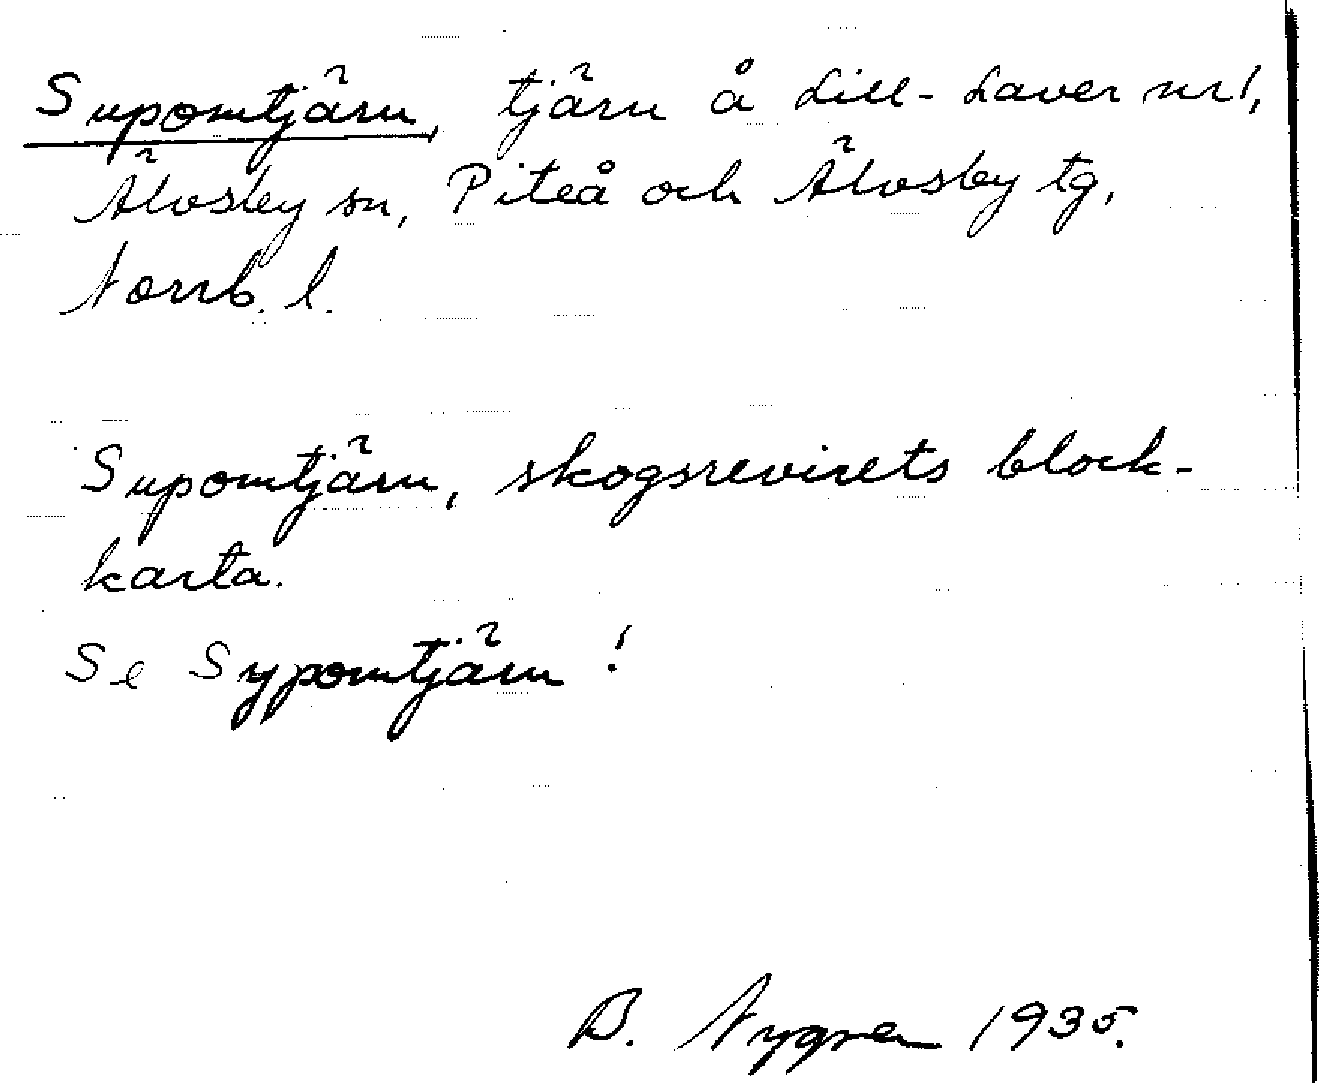 Supomtjärn, tjärn å Lill-Laver nr 1,
Älvsby sn, Piteå och Älvsby tg,
Norrb. l.
Supomtjärn, skogsrevirets block-
karta.
Se Sypomtjärn!
B. Nygren 1935.